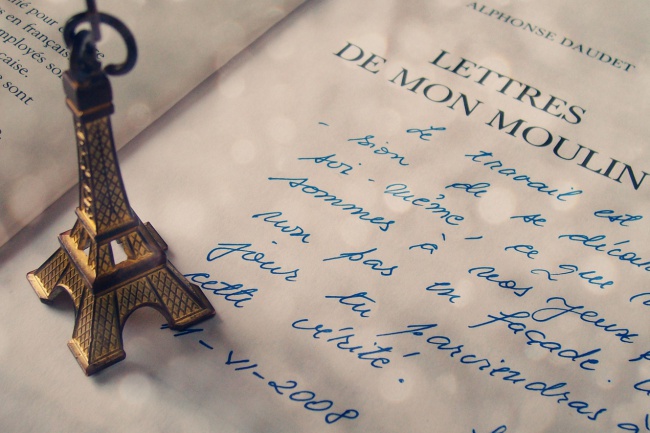 ité pour
s en français
mployés so
caise.
s sont
ALPHONSE DAUDET
LETTRES
DE MON MOULIN
Le travail est
- sion de se décou
soi-même, ce que n
sommes à nos yeux p
non pas en façade.
jour tu parviendras à
cette vérité.
11-VI-2008